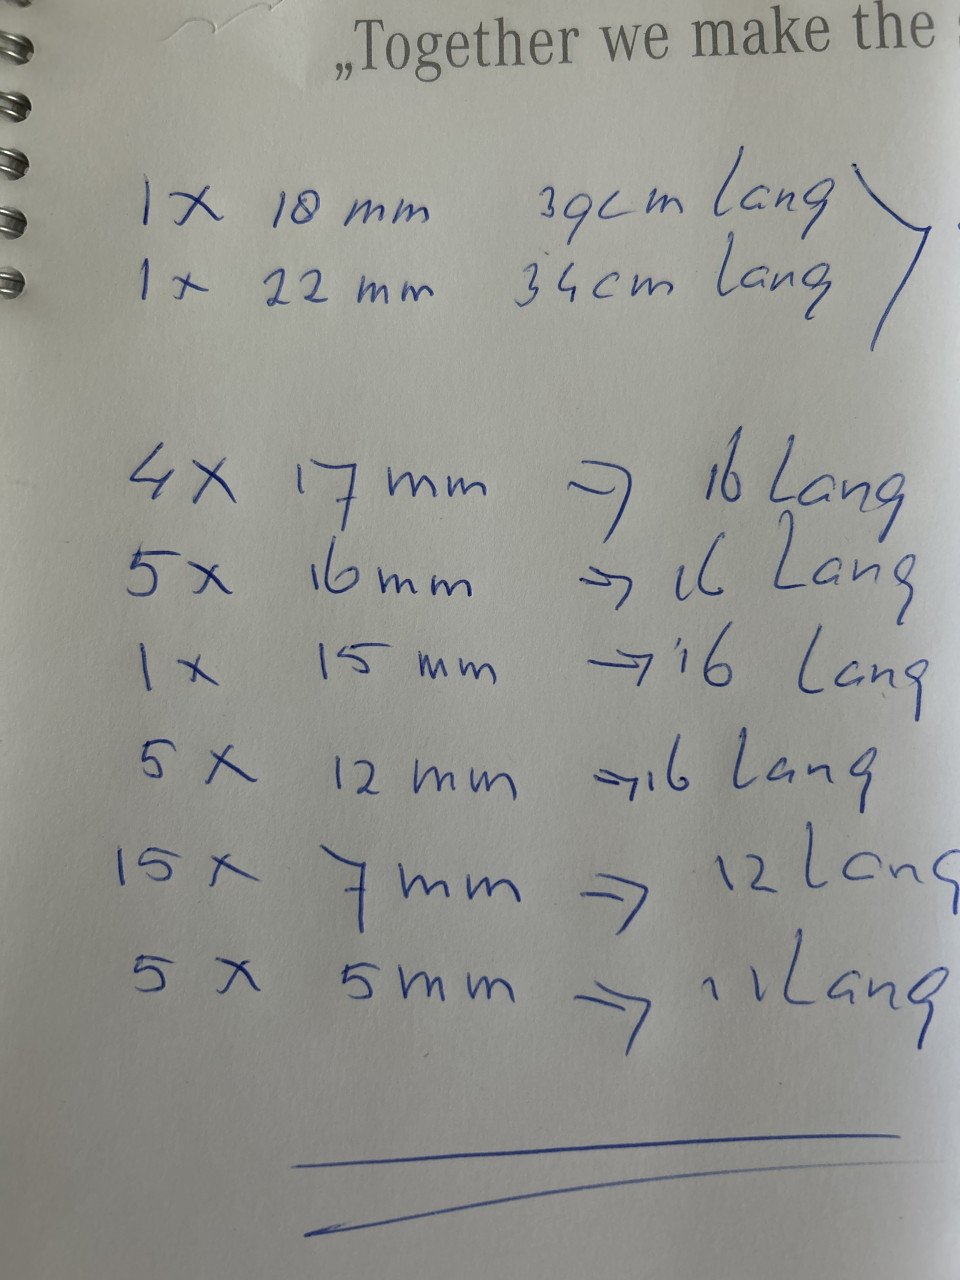 „Together we make the
1x 18 mm 39cm lang
1x 22 mm 34cm lang
4x 17 mm => 16 lang
5x 16 mm => 16 lang
1x 15 mm => 16 lang
5x 12 mm => 16 lang
15x 7 mm => 12 lang
5x 5 mm => 11 lang